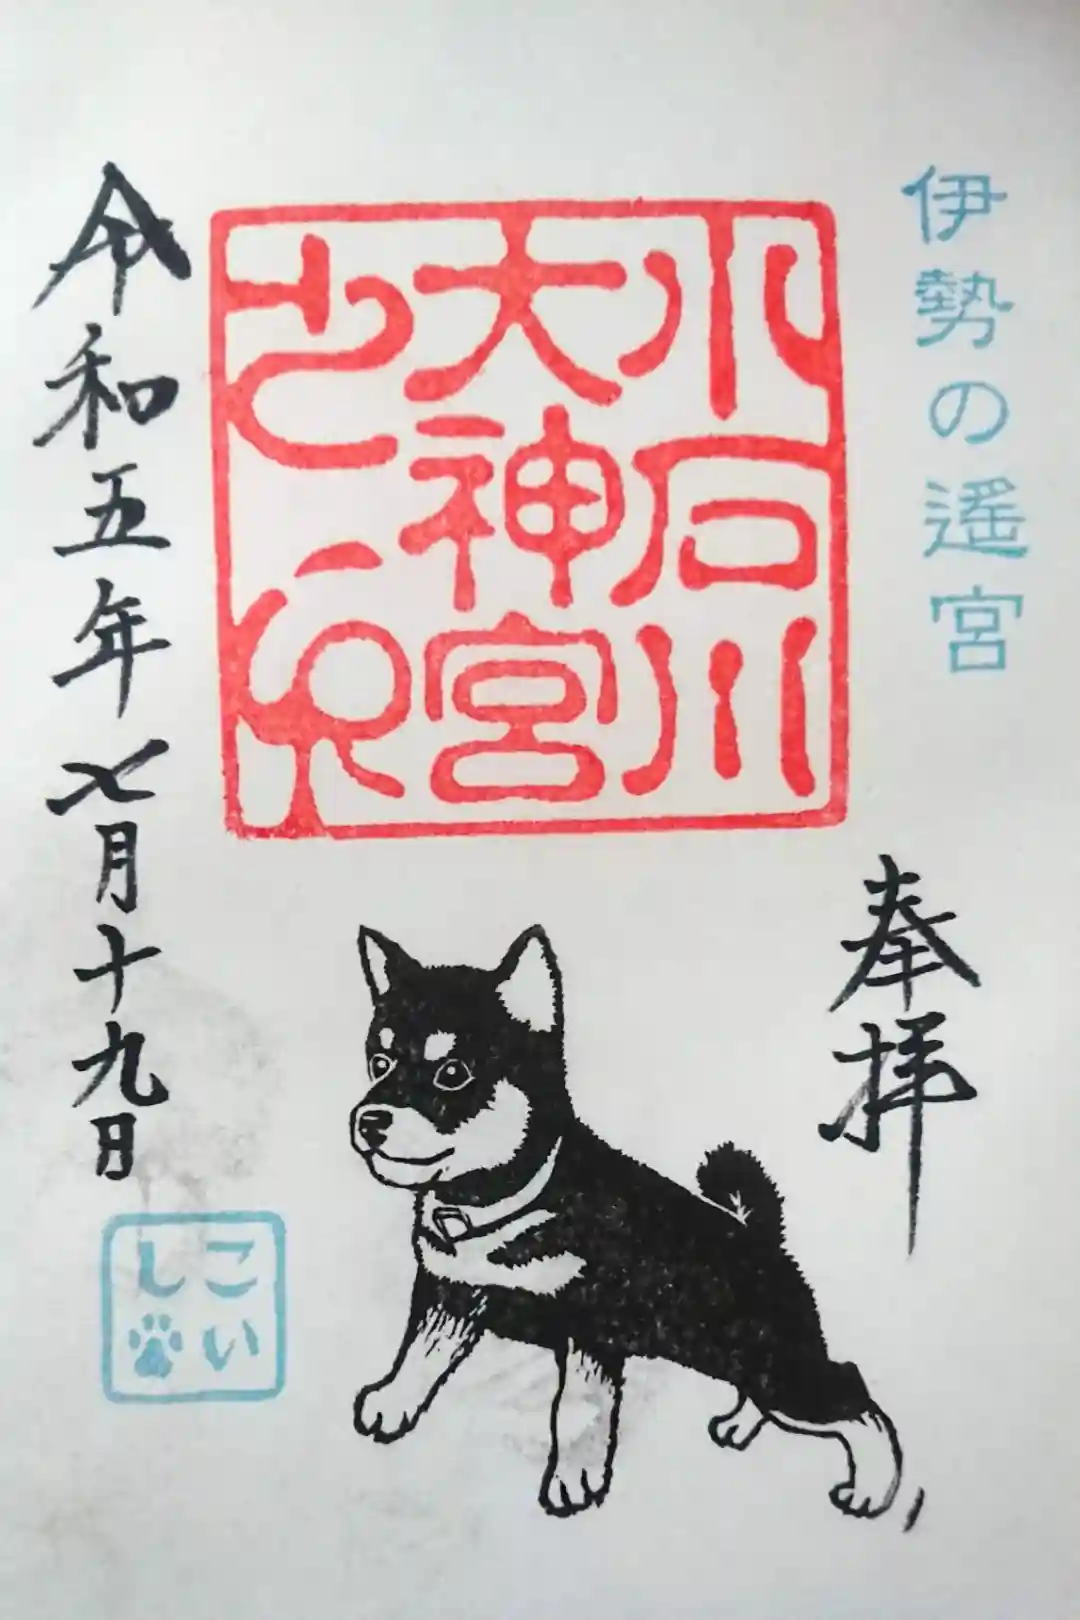 伊勢の遙宮
奉拝
小石川
大神宮
令和五年七月十九日
こい
し